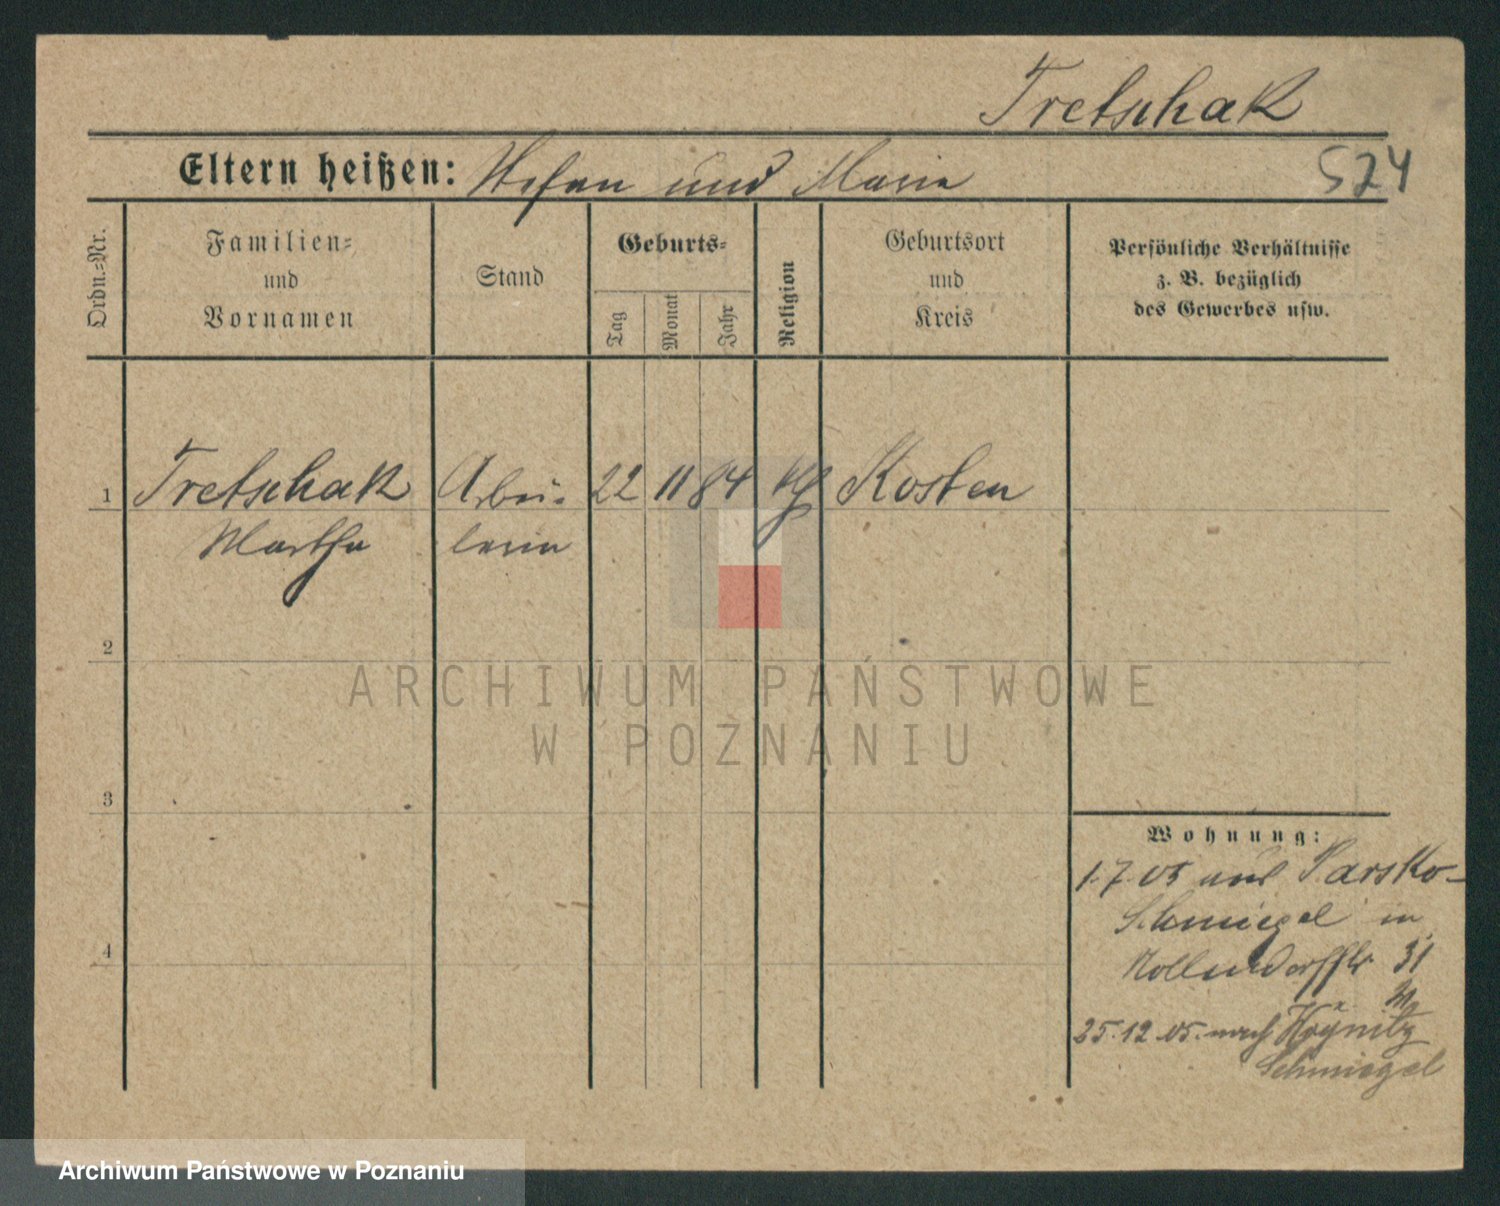 Tretschak
Eltern heißen: Stefan und Marie
524
Ordn.-Nr.
Familien-
und
Vornamen
Stand
Geburts-
Tag
Monat
Jahr
Religion
Geburtsort
und
Kreis
Persönliche Verhältnisse
z. B. bezüglich
des Gewerbes usw.
1 Tretschak Arbei- 22 11 84 kth Kosten
Martha terin
2
3
4
Wohnung:
1.7.05 aus Parsko-
Schmiegel in
Nollendorffstr 31
25.12.05. nach
Schmiegel
ARCHIWUM PAŃSTWOWE
W POZNANIU
Archiwum Państwowe w Poznaniu